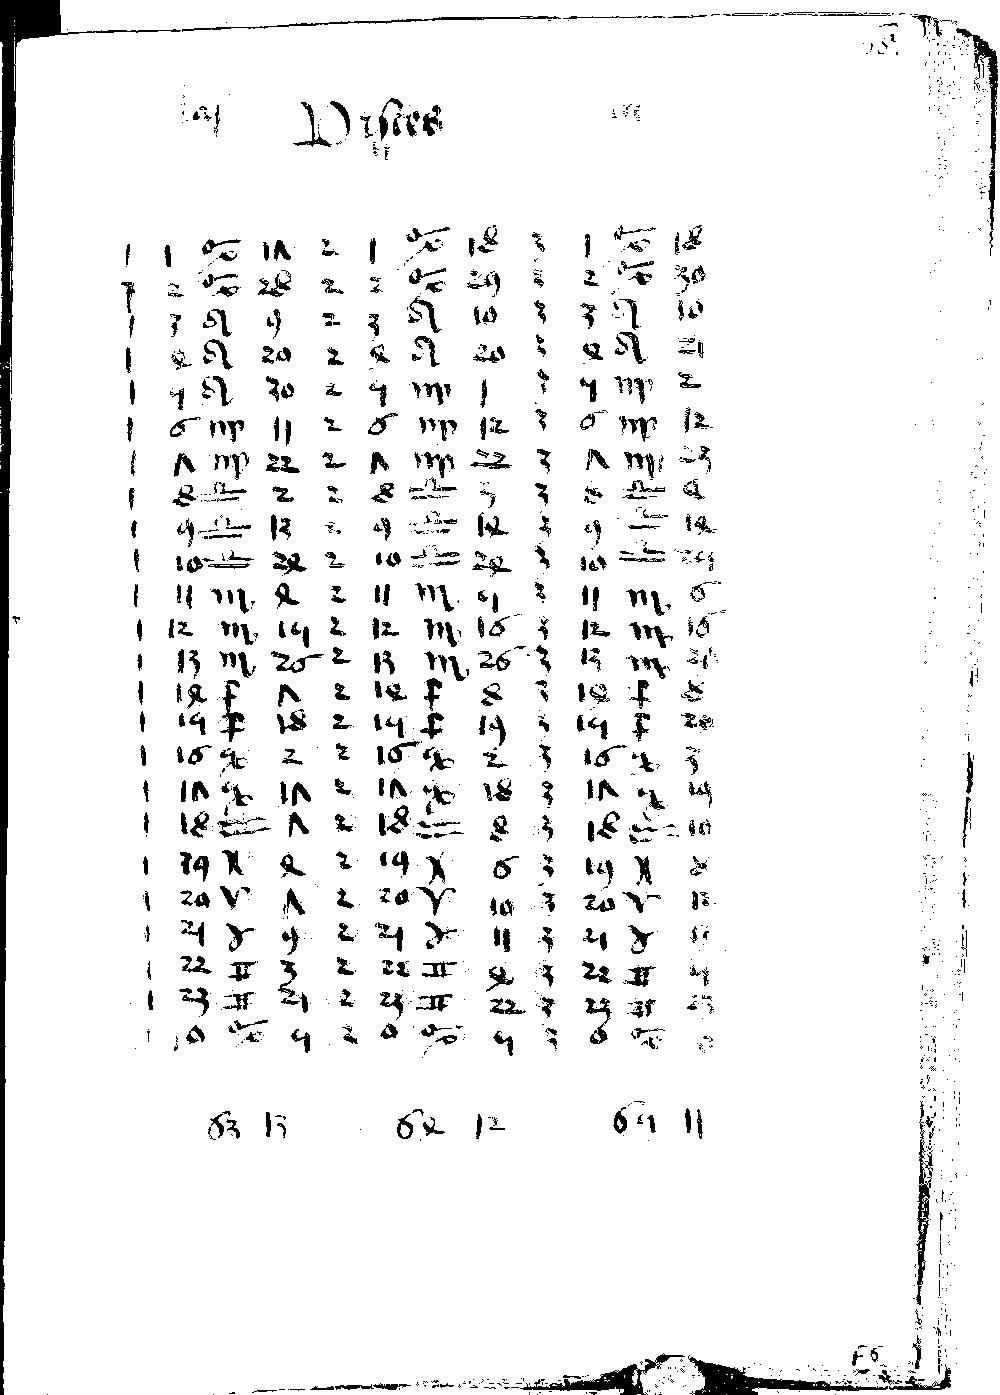 Pisces
1 1 ♋ 17 2 1 ♋ 18 3 1 ♋ 18
1 2 ♋ 28 2 2 ♋ 29 3 2 ♋ 30
1 3 ♌ 9 2 3 ♌ 10 3 3 ♌ 10
1 4 ♌ 20 2 4 ♌ 20 3 4 ♌ 21
1 5 ♌ 30 2 5 ♍ 1 3 5 ♍ 2
1 6 ♍ 11 2 6 ♍ 12 3 6 ♍ 12
1 7 ♍ 22 2 7 ♍ 22 3 7 ♍ 23
1 8 ♎ 2 2 8 ♎ 3 3 8 ♎ 4
1 9 ♎ 13 2 9 ♎ 14 3 9 ♎ 14
1 10 ♎ 24 2 10 ♎ 24 3 10 ♎ 25
1 11 ♏ 4 2 11 ♏ 5 3 11 ♏ 6
1 12 ♏ 15 2 12 ♏ 16 3 12 ♏ 16
1 13 ♏ 26 2 13 ♏ 26 3 13 ♏ 26
1 14 ♐ 7 2 14 ♐ 8 3 14 ♐ 8
1 15 ♐ 18 2 15 ♐ 19 3 15 ♐ 20
1 16 ♑ 2 2 16 ♑ 2 3 16 ♑ 3
1 17 ♑ 17 2 17 ♑ 18 3 17 ♑ 19
1 18 ♒ 7 2 18 ♒ 8 3 18 ♒ 10
1 19 ♓ 4 2 19 ♓ 6 3 19 ♓ 8
1 20 ♈ 7 2 20 ♈ 10 3 20 ♈ 13
1 21 ♉ 9 2 21 ♉ 11 3 21 ♉
1 22 ♊ 3 2 22 ♊ 4 3 22 ♊ 5
1 23 ♊ 21 2 23 ♊ 22 3 23 ♊ 23
1 0 ♋ 5 2 0 ♋ 5 3 0 ♋
63 13 64 12 65 11
F6